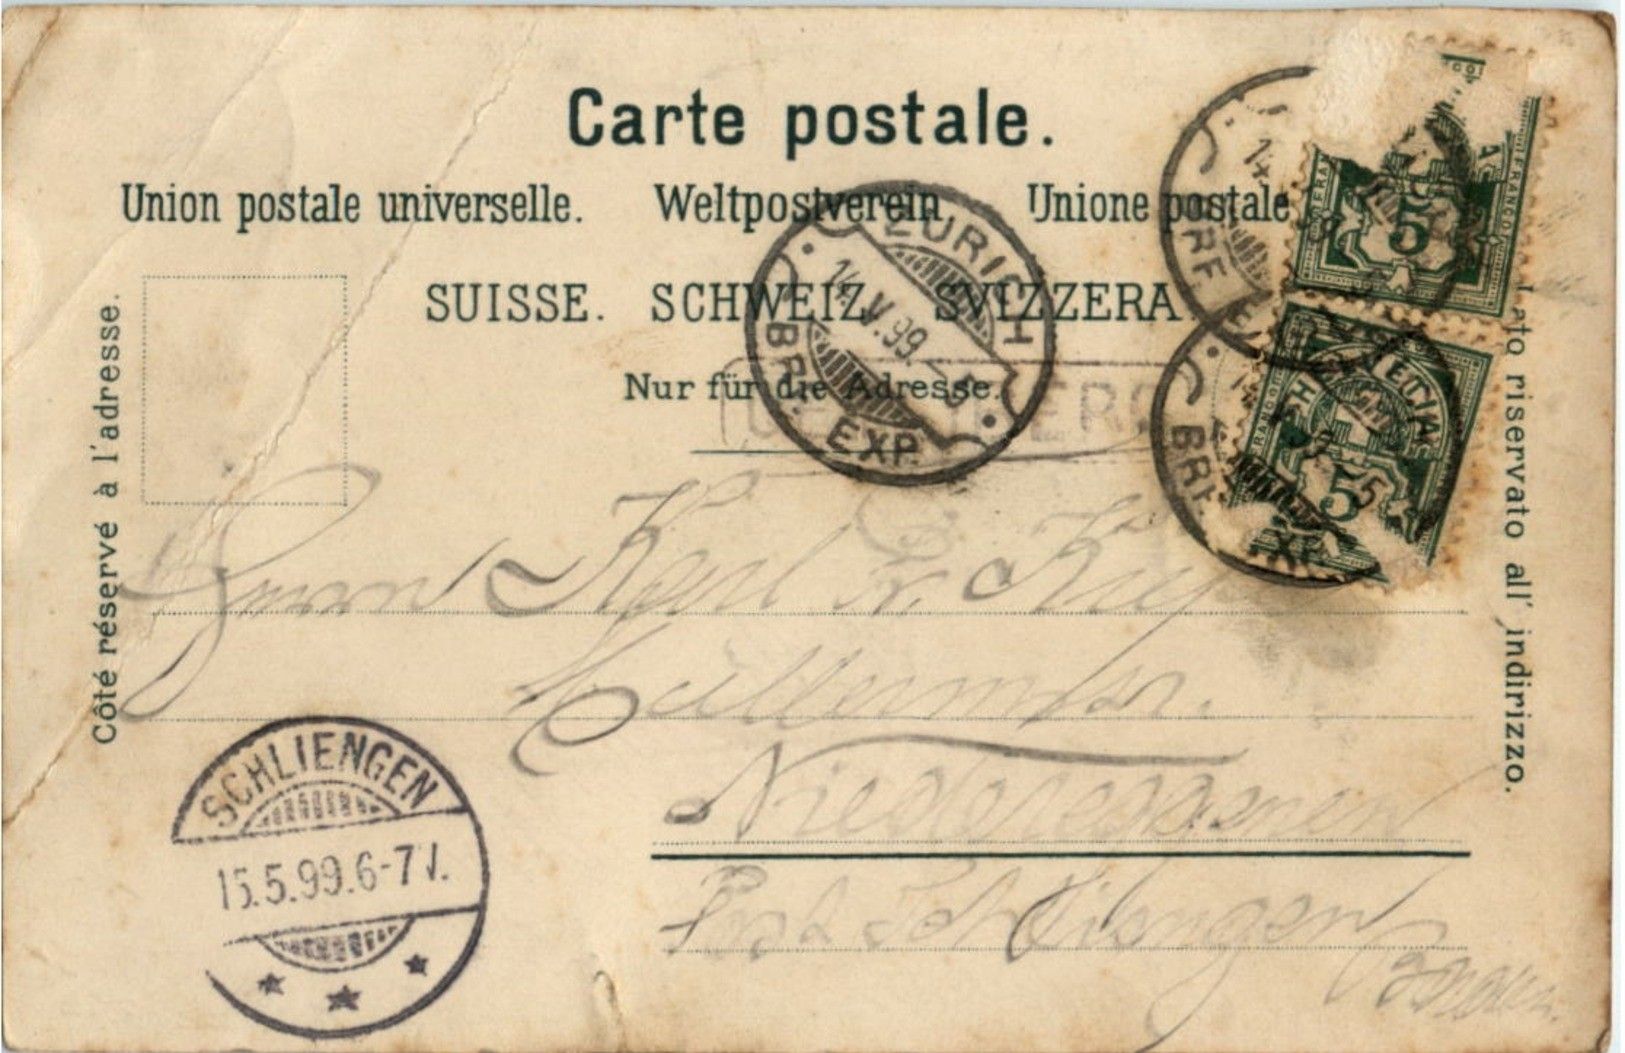 Carte postale.
Union postale universelle. Weltpostverein Unione postale
SUISSE. SCHWEIZ. SVIZZERA
Nur für die Adresse.
Côté réservé à l'adresse.
lato riservato all' indirizzo.
ZÜRICH
14.V.99.-5
BRF. EXP.
HELVETIA
FRANCO
5
FRANCO
5
Herrn Karl Fr.
Müllermstr.
Niedereggenen
Post Schliengen
Baden.
SCHLIENGEN
15.5.99.6-7V.